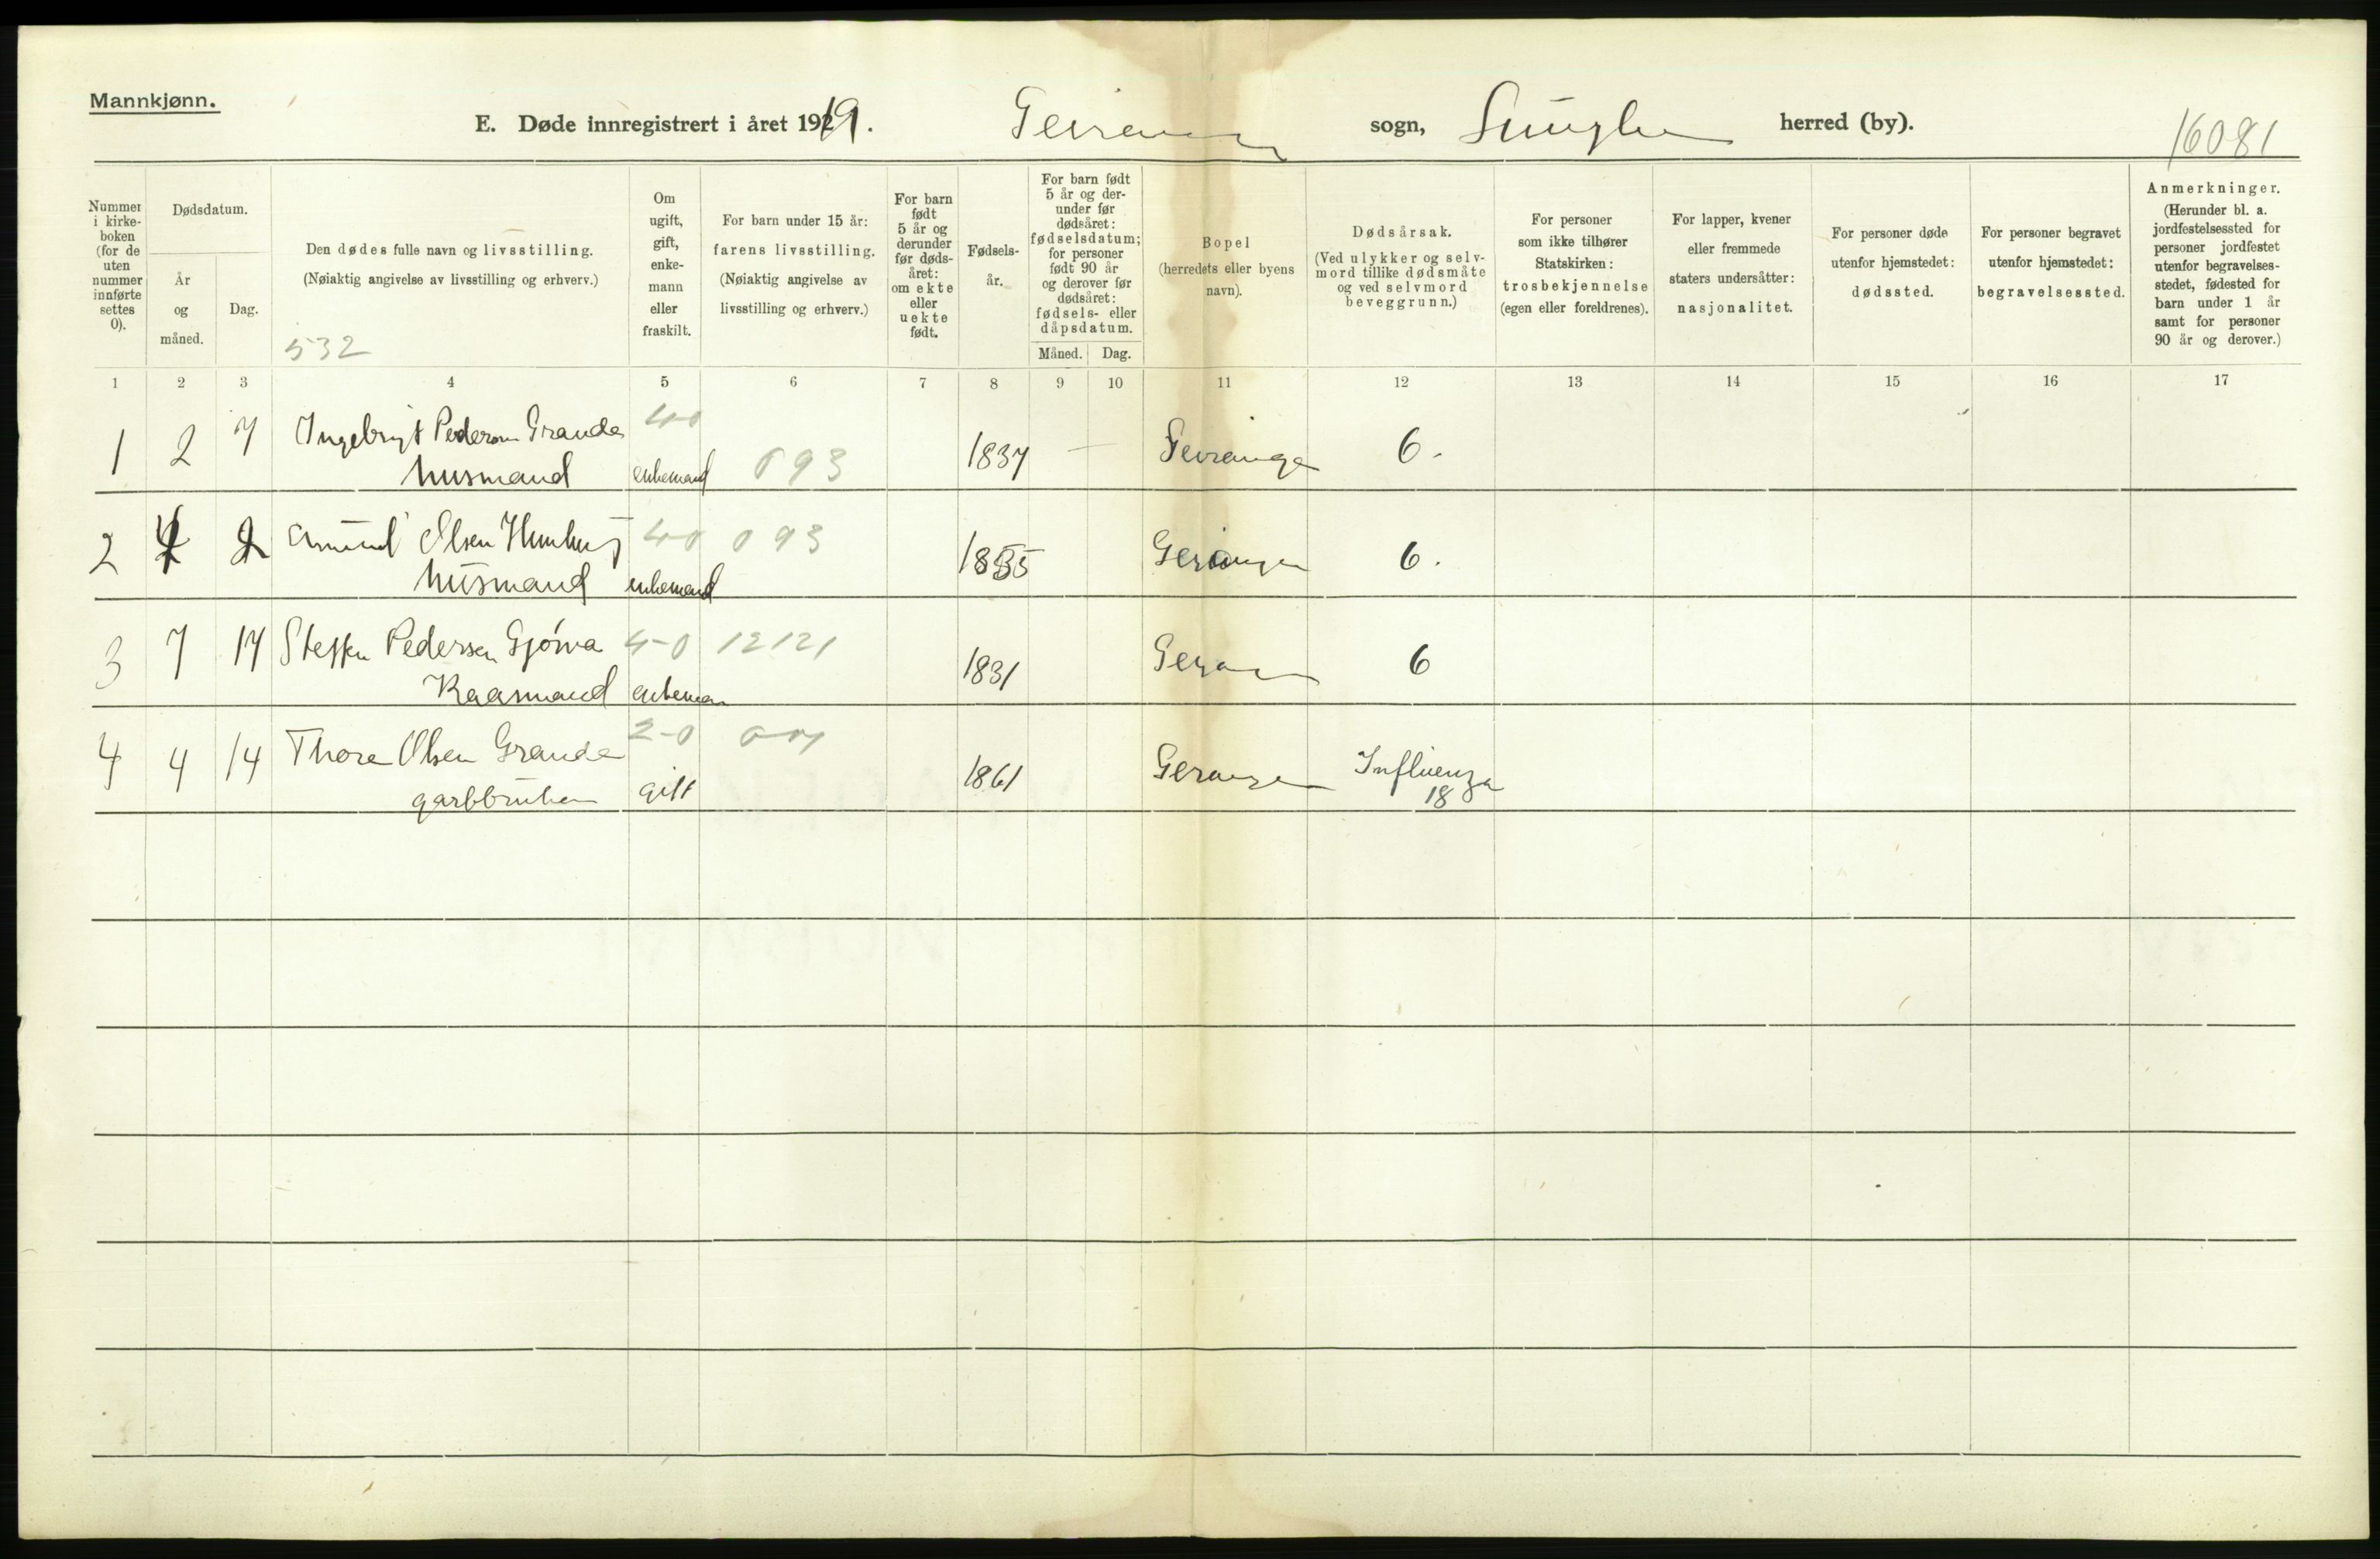 Mannkjønn.
E. Døde innregistrert i året 1919. Geiranger sogn, Sunnylven herred (by).
16081
Nummer i kirkeboken (for de uten nummer innførte settes 0).
Dødsdatum.
År og måned.
Dag.
Den dødes fulle navn og livsstilling.
(Nøiaktig angivelse av livsstilling og erhverv.)
532
Om ugift, gift, enkemann eller fraskilt.
For barn under 15 år: farens livsstilling.
(Nøiaktig angivelse av livsstilling og erhverv.)
For barn født 5 år og derunder før dødsåret: om ekte eller uekte født.
Fødselsår.
For barn født 5 år og derunder før dødsåret: fødselsdatum; for personer født 90 år og derover før dødsåret: fødsels- eller dåpsdatum.
Måned. Dag.
Bopel (herredets eller byens navn).
Dødsårsak.
(Ved ulykker og selvmord tillike dødsmåte og ved selvmord beveggrunn.)
For personer som ikke tilhører Statskirken: trosbekjennelse (egen eller foreldrenes).
For lapper, kvener eller fremmede staters undersåtter: nasjonalitet.
For personer døde utenfor hjemstedet: dødssted.
For personer begravet utenfor hjemstedet: begravelsessted.
Anmerkninger.
(Herunder bl. a. jordfestelsessted for personer jordfestet utenfor begravelsesstedet, fødested for barn under 1 år samt for personer 90 år og derover.)
1 2 3 4 5 6 7 8 9 10 11 12 13 14 15 16 17
1 2 7 Ingebrigt Pedersen Grande 40
husmand enkemand 093 1837 — Geiranger 6.
2 4 2 Amund Olsen 40 093
husmand enkemand 1835 Geranger 6.
3 7 17 Steffen Pedersen Gjørva 4-0 12121
Kaarmand enkeman 1831 Geranger 6
4 4 14 Thore Olsen Grande 2-0 001
garbbruker gift 1861 Geranger Influenza
18